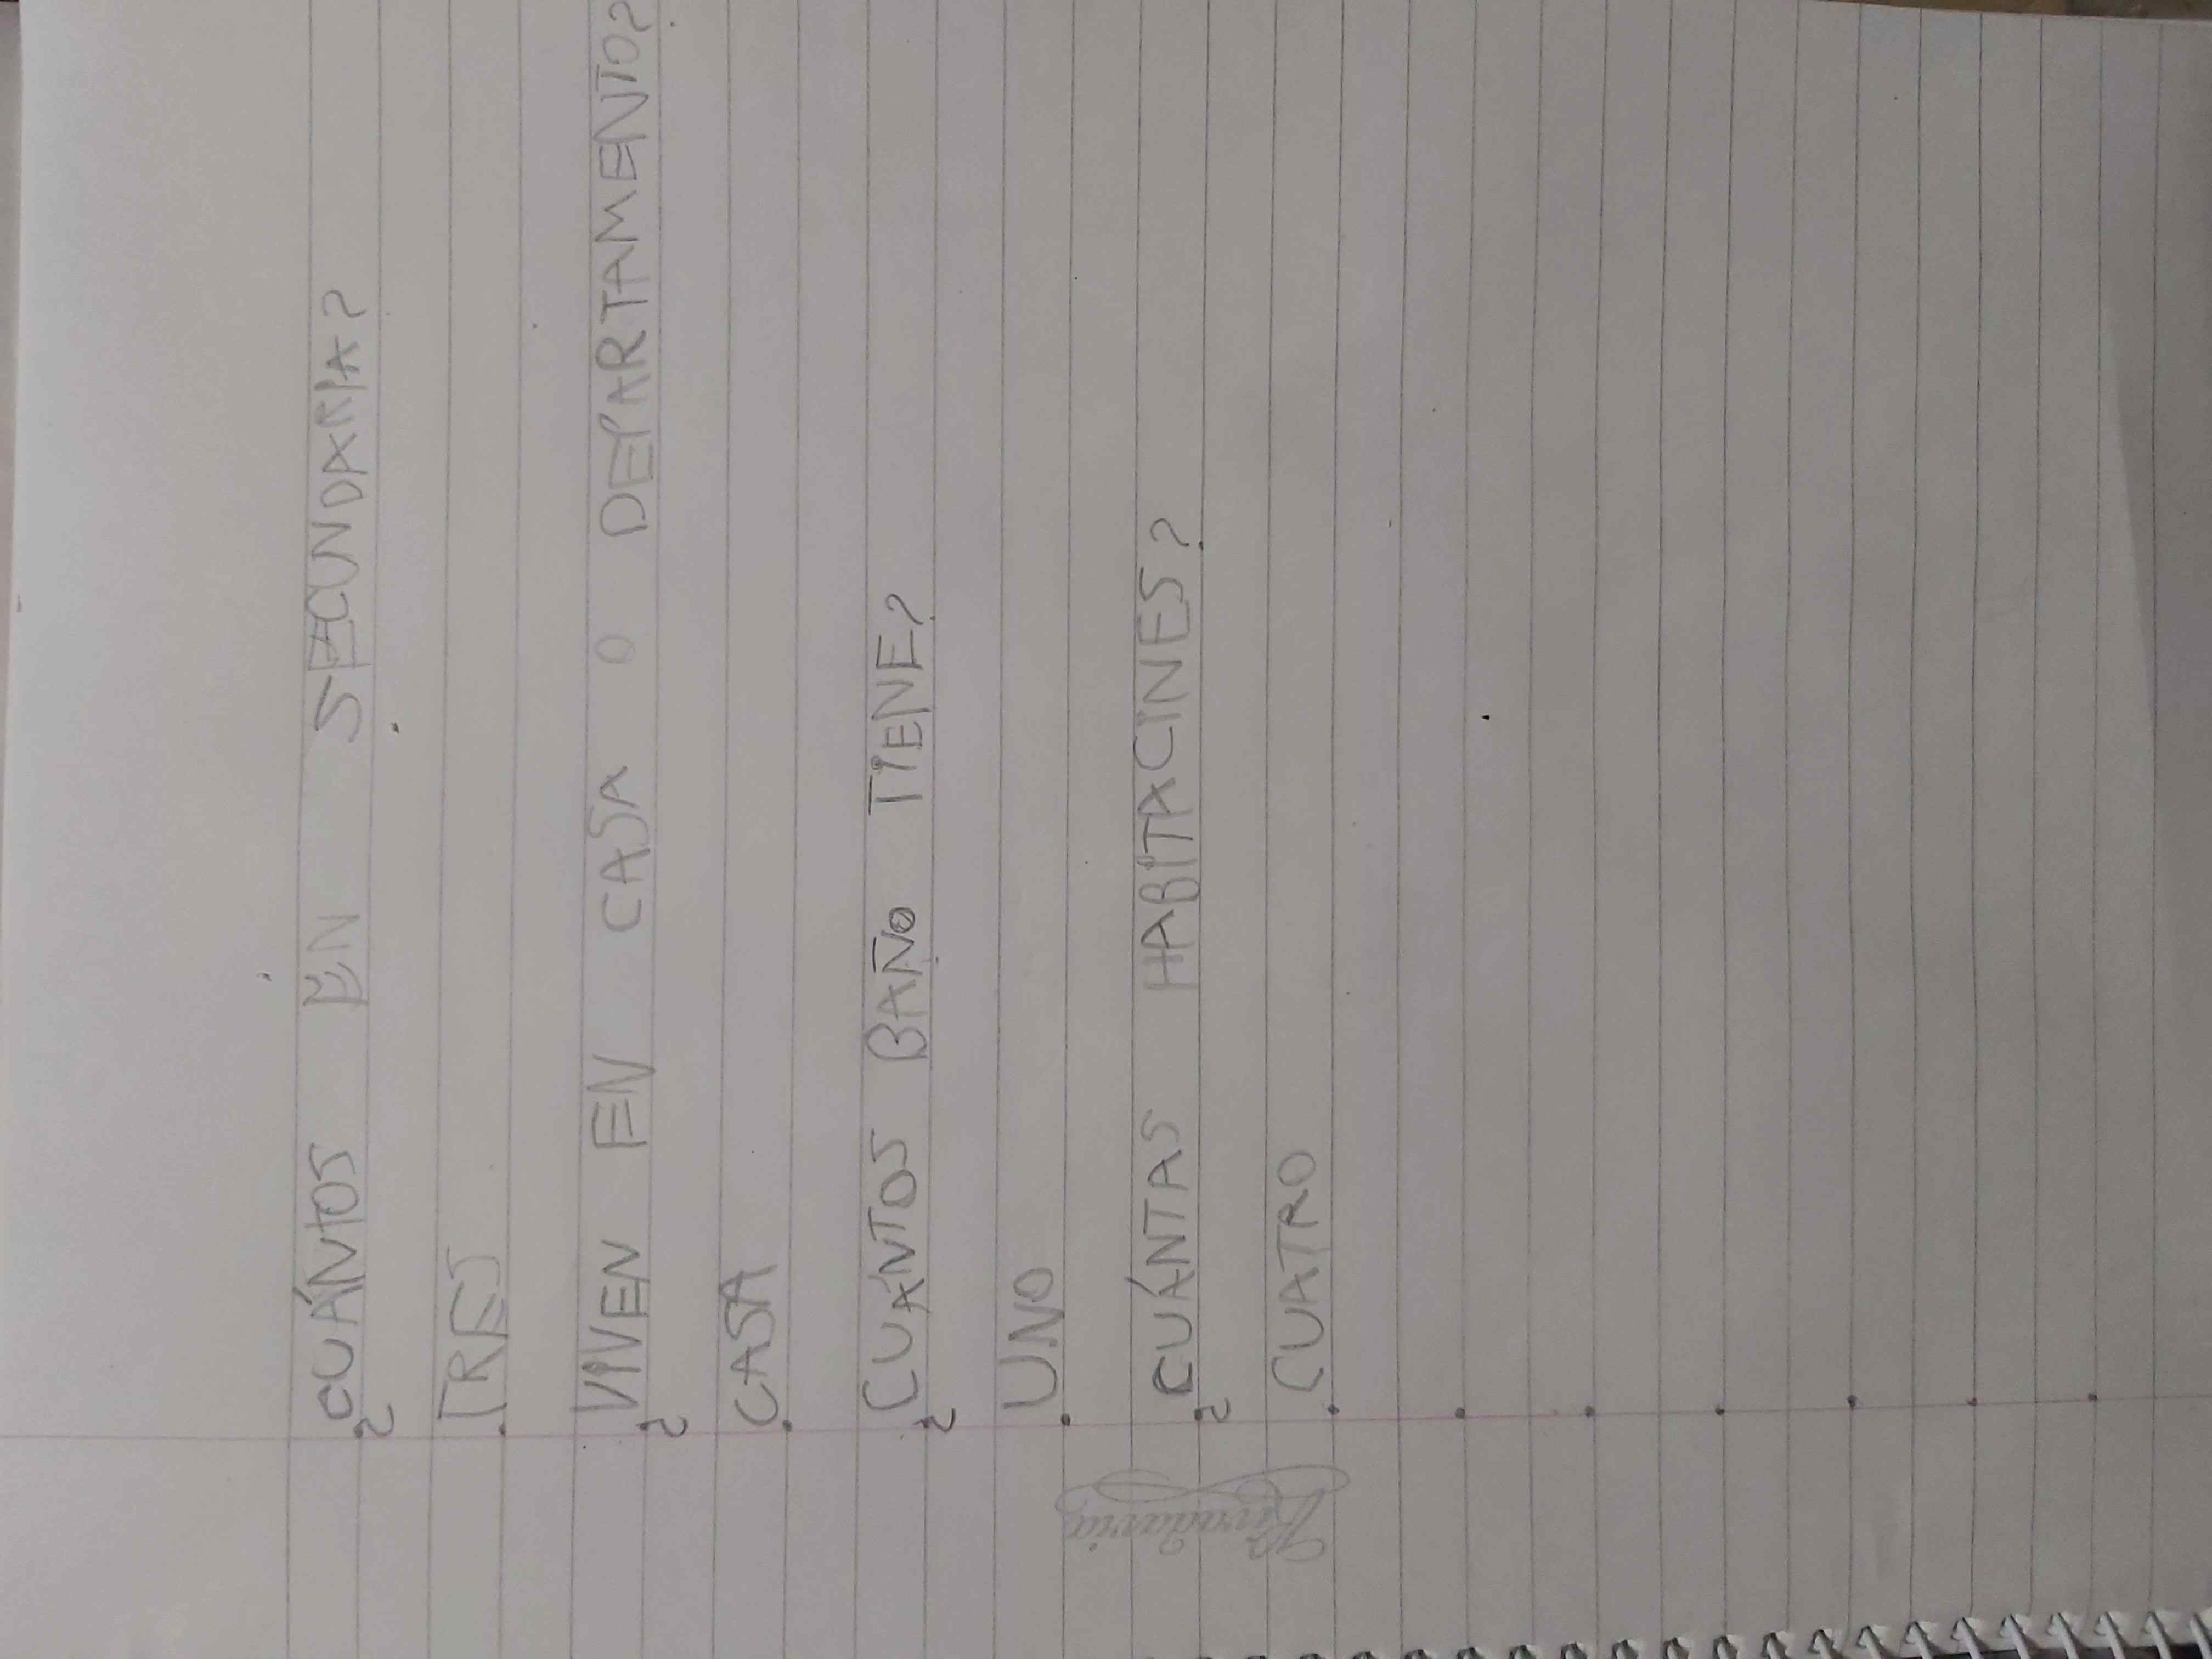 ¿CUÁNTOS EN SECUNDARIA?
.TRES
¿VIVEN EN CASA O DEPARTAMENTO?
.CASA
¿CUÁNTOS BAÑO TIENE?
.UNO
¿CUÁNTAS HABITACINES?
.CUATRO
Rivadavia